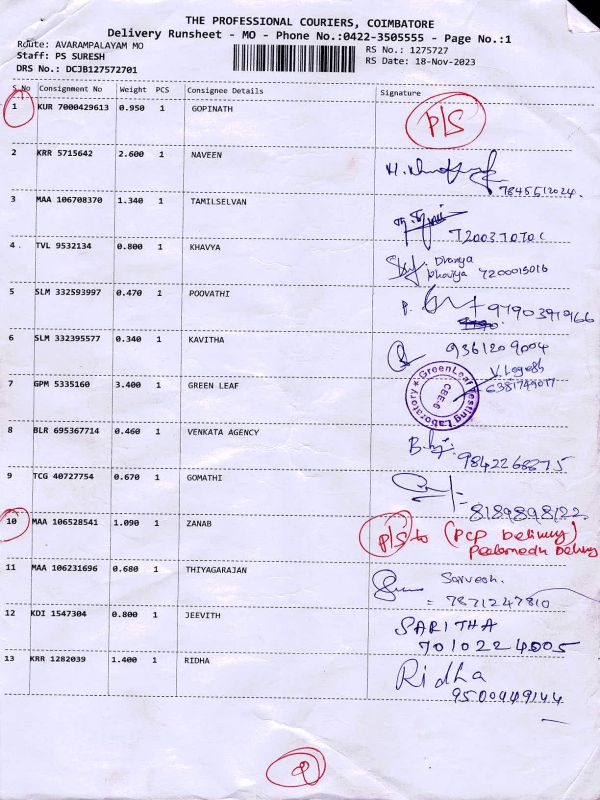 THE PROFESSIONAL COURIERS, COIMBATORE
Delivery Runsheet - MO - Phone No.:0422-3505555 - Page No.:1
Route: AVARAMPALAYAM MO
Staff: PS SURESH
DRS No.: DCJB127572701
RS No.: 1275727
RS Date: 18-Nov-2023
S.No Consignment No Weight PCS Consignee Details Signature
1 KUR 7000429613 0.950 1 GOPINATH P/S
2 KRR 5715642 2.600 1 NAVEEN
7845512024.
3 MAA 106708370 1.340 1 TAMILSELVAN
4 TVL 9532134 0.800 1 KHAVYA Dhanya
7200015016
5 SLM 332593997 0.470 1 POOVATHI
6 SLM 332395577 0.340 1 KAVITHA 9361209004
7 GPM 5335160 3.400 1 GREEN LEAF GreenLeaf Testing Laboratory CBE-6
V. Logesh
8 BLR 695367714 0.460 1 VENKATA AGENCY
9842268875
9 TCG 40727754 0.670 1 GOMATHI
8189898122
10 MAA 106528541 1.090 1 ZANAB P/S to (PCP Delivery)
Peelamedu Delivery
11 MAA 106231696 0.680 1 THIYAGARAJAN Sarvesh.
= 7871247810
12 KDI 1547304 0.800 1 JEEVITH SARITHA
7010224005
13 KRR 1282039 1.400 1 RIDHA Ridha
9500949144